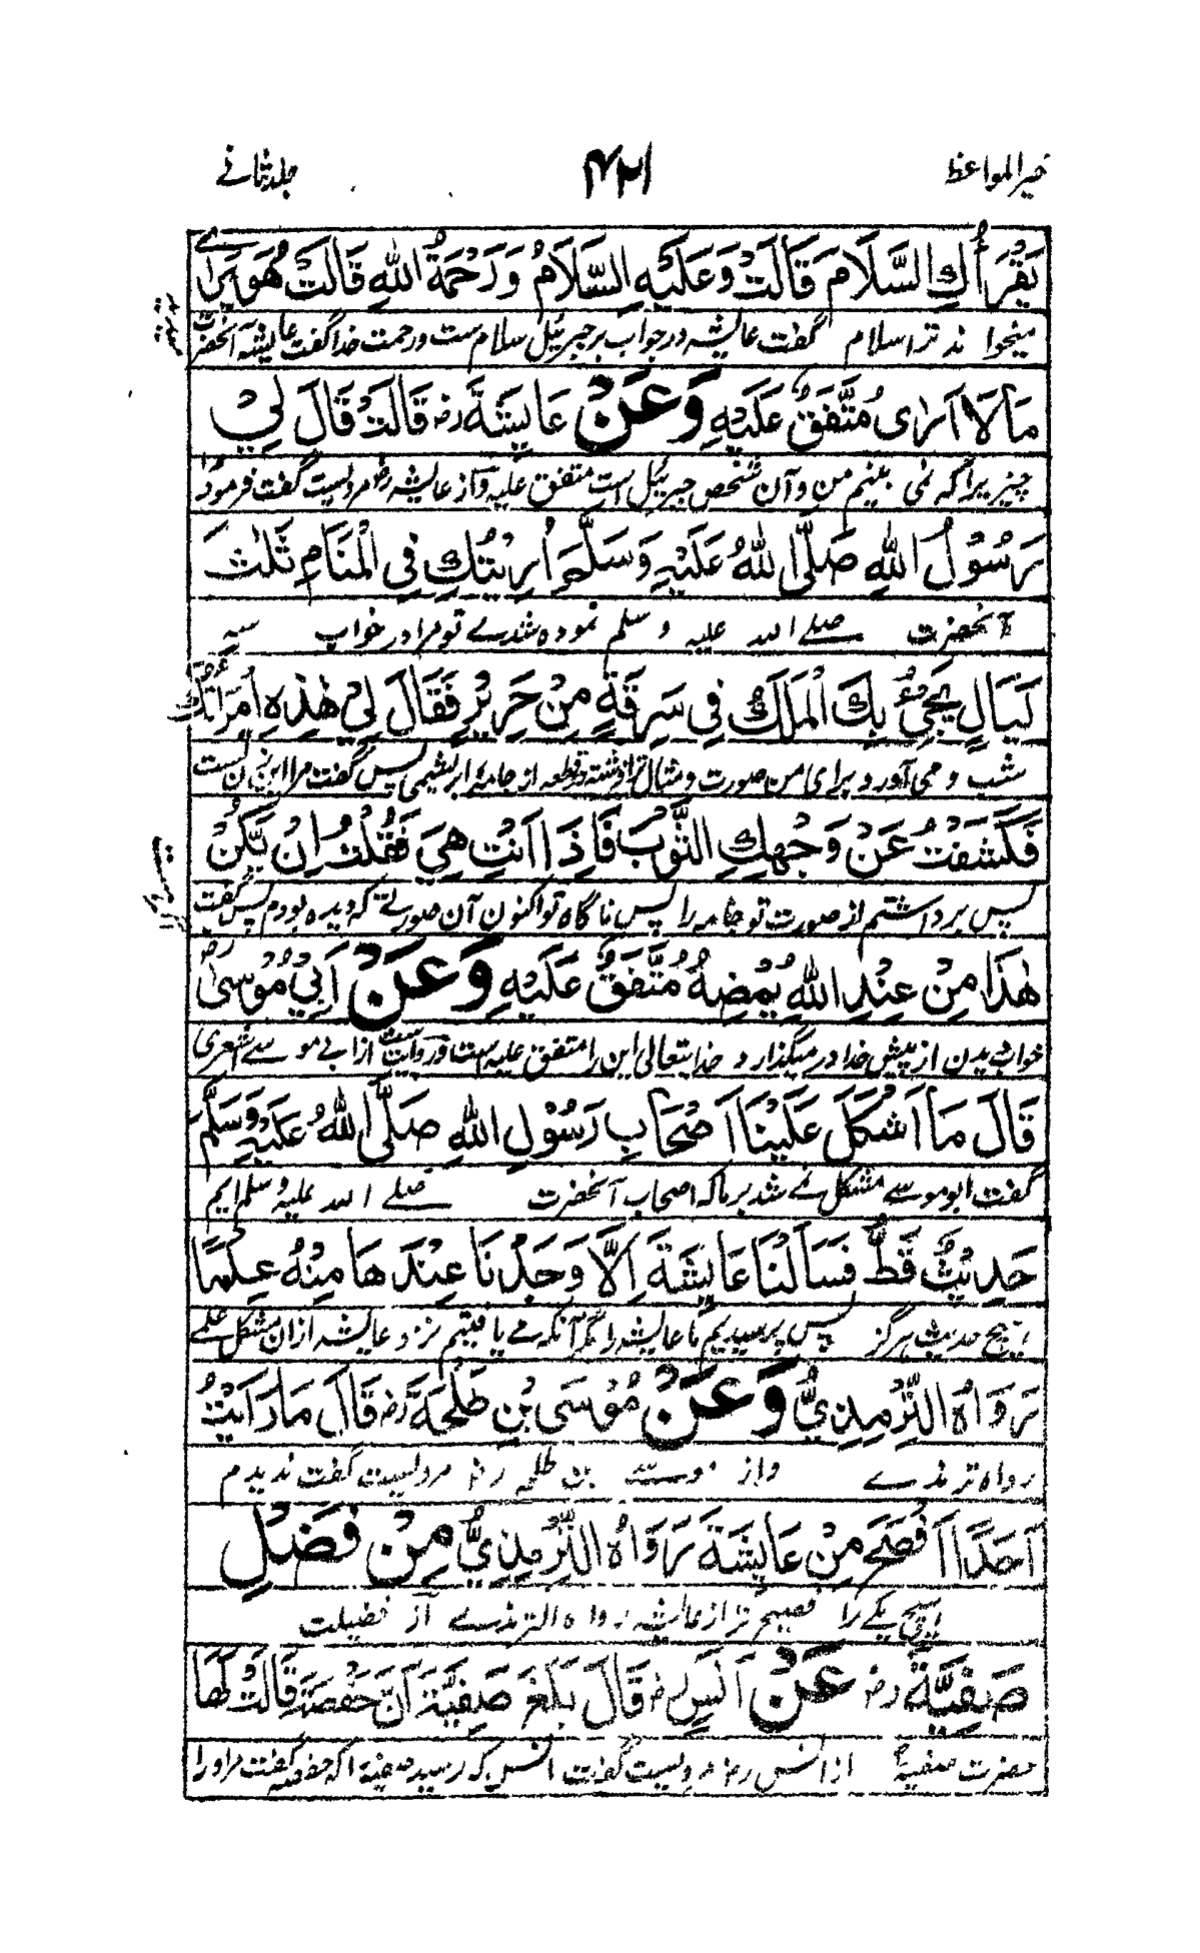 خیر المواعظ
۴۲۱
جلد ثانے
يَقْرَأُكِ السَّلَامَ قَالَتْ وَعَلَيْهِ السَّلَامُ وَرَحْمَةُ اللهِ قَالَتْ هُوَ يَرٰى
میخوا ند ترا سلام گفت عایشہ در جواب بر جبرئیل سلام ست و رحمت خدا گفت عایشہ آنحضرت
مَا لَا اَرٰى مُتَّفَقٌ عَلَيْهِ وَعَنْ عَايِشَةَ رض قَالَتْ قَالَ لِيْ
چیز یرا کہ نمی بینم من و آن شخص جبرئیل است متفق علیہ و از عایشہ رض مرویست گفت فرمود مرا
رَسُوْلُ اللهِ صَلَّى اللهُ عَلَيْهِ وَسَلَّمَ اُرِيْتُكِ فِي الْمَنَامِ ثَلٰثَ
آنحضرت صلے اللہ علیہ و سلم نمودہ شدے تو مرا در خواب سہ
لَيَالٍ يَجِيْءُ بِكِ الْمَلَكُ فِيْ سَرِقَةٍ مِنْ حَرِيْرٍ فَقَالَ لِيْ هٰذِهِ امْرَاَتُكَ
شب و می آورد برای من صورت و مثال ترا فرشتہ در قطعہ از جامۂ ابریشمی پس گفت مرا این زن تست
فَكَشَفْتُ عَنْ وَجْهِكِ الثَّوْبَ فَاِذَا اَنْتِ هِيَ فَقُلْتُ اِنْ يَّكُنْ
پس برداشتم از صورت تو جامہ را پس ناگاہ تو اکنون آن صورتے کہ دیدہ بودم پس گفت
هٰذَا مِنْ عِنْدِ اللهِ يُمْضِهُ مُتَّفَقٌ عَلَيْهِ وَعَنْ اَبِيْ مُوْسٰى رض
خواب بدن از پیش خدا در میگذارد خدایتعالی این را متفق علیہ است و روایت ست از ابی موسے اشعری
قَالَ مَا اَشْكَلَ عَلَيْنَا اَصْحَابِ رَسُوْلِ اللهِ صَلَّى اللهُ عَلَيْهِ وَسَلَّمَ
گفت ابو موسے مشکل نے شد بر ما کہ اصحاب آنحضرت صلے اللہ علیہ و سلم ایم
حَدِيْثٌ قَطُّ فَسَاَلْنَا عَايِشَةَ اِلَّا وَجَدْنَا عِنْدَهَا مِنْهُ عِلْمًا
ہیچ حدیث ہرگز پس پرسیدیم ما عایشہ را مگر آنکہ مے یافتیم نزد عایشہ ازان مشکل علمے
رَوَاهُ التِّرْمِذِيُّ وَعَنْ مُوْسَى بْنِ طَلْحَةَ رض قَالَ مَا رَاَيْتُ
رواہ ترمذے و از موسے بن طلحہ رض مرویست گفت ندیدم
اَحَدًا اَفْصَحَ مِنْ عَايِشَةَ رَوَاهُ التِّرْمِذِيُّ مِنْ فَضْلِ
ہیچ یکے را فصیح تر از عایشہ رواہ الترمذے از فضیلت
صَفِيَّةَ رض عَنْ اَنَسٍ رض قَالَ بَلَغَ صَفِيَّةَ اَنَّ حَفْصَةَ قَالَتْ لَهَا
حضرت صفیہ رض از انس رض مرویست گفت انس کہ رسید صفیہ را کہ حفصہ گفت مر او را